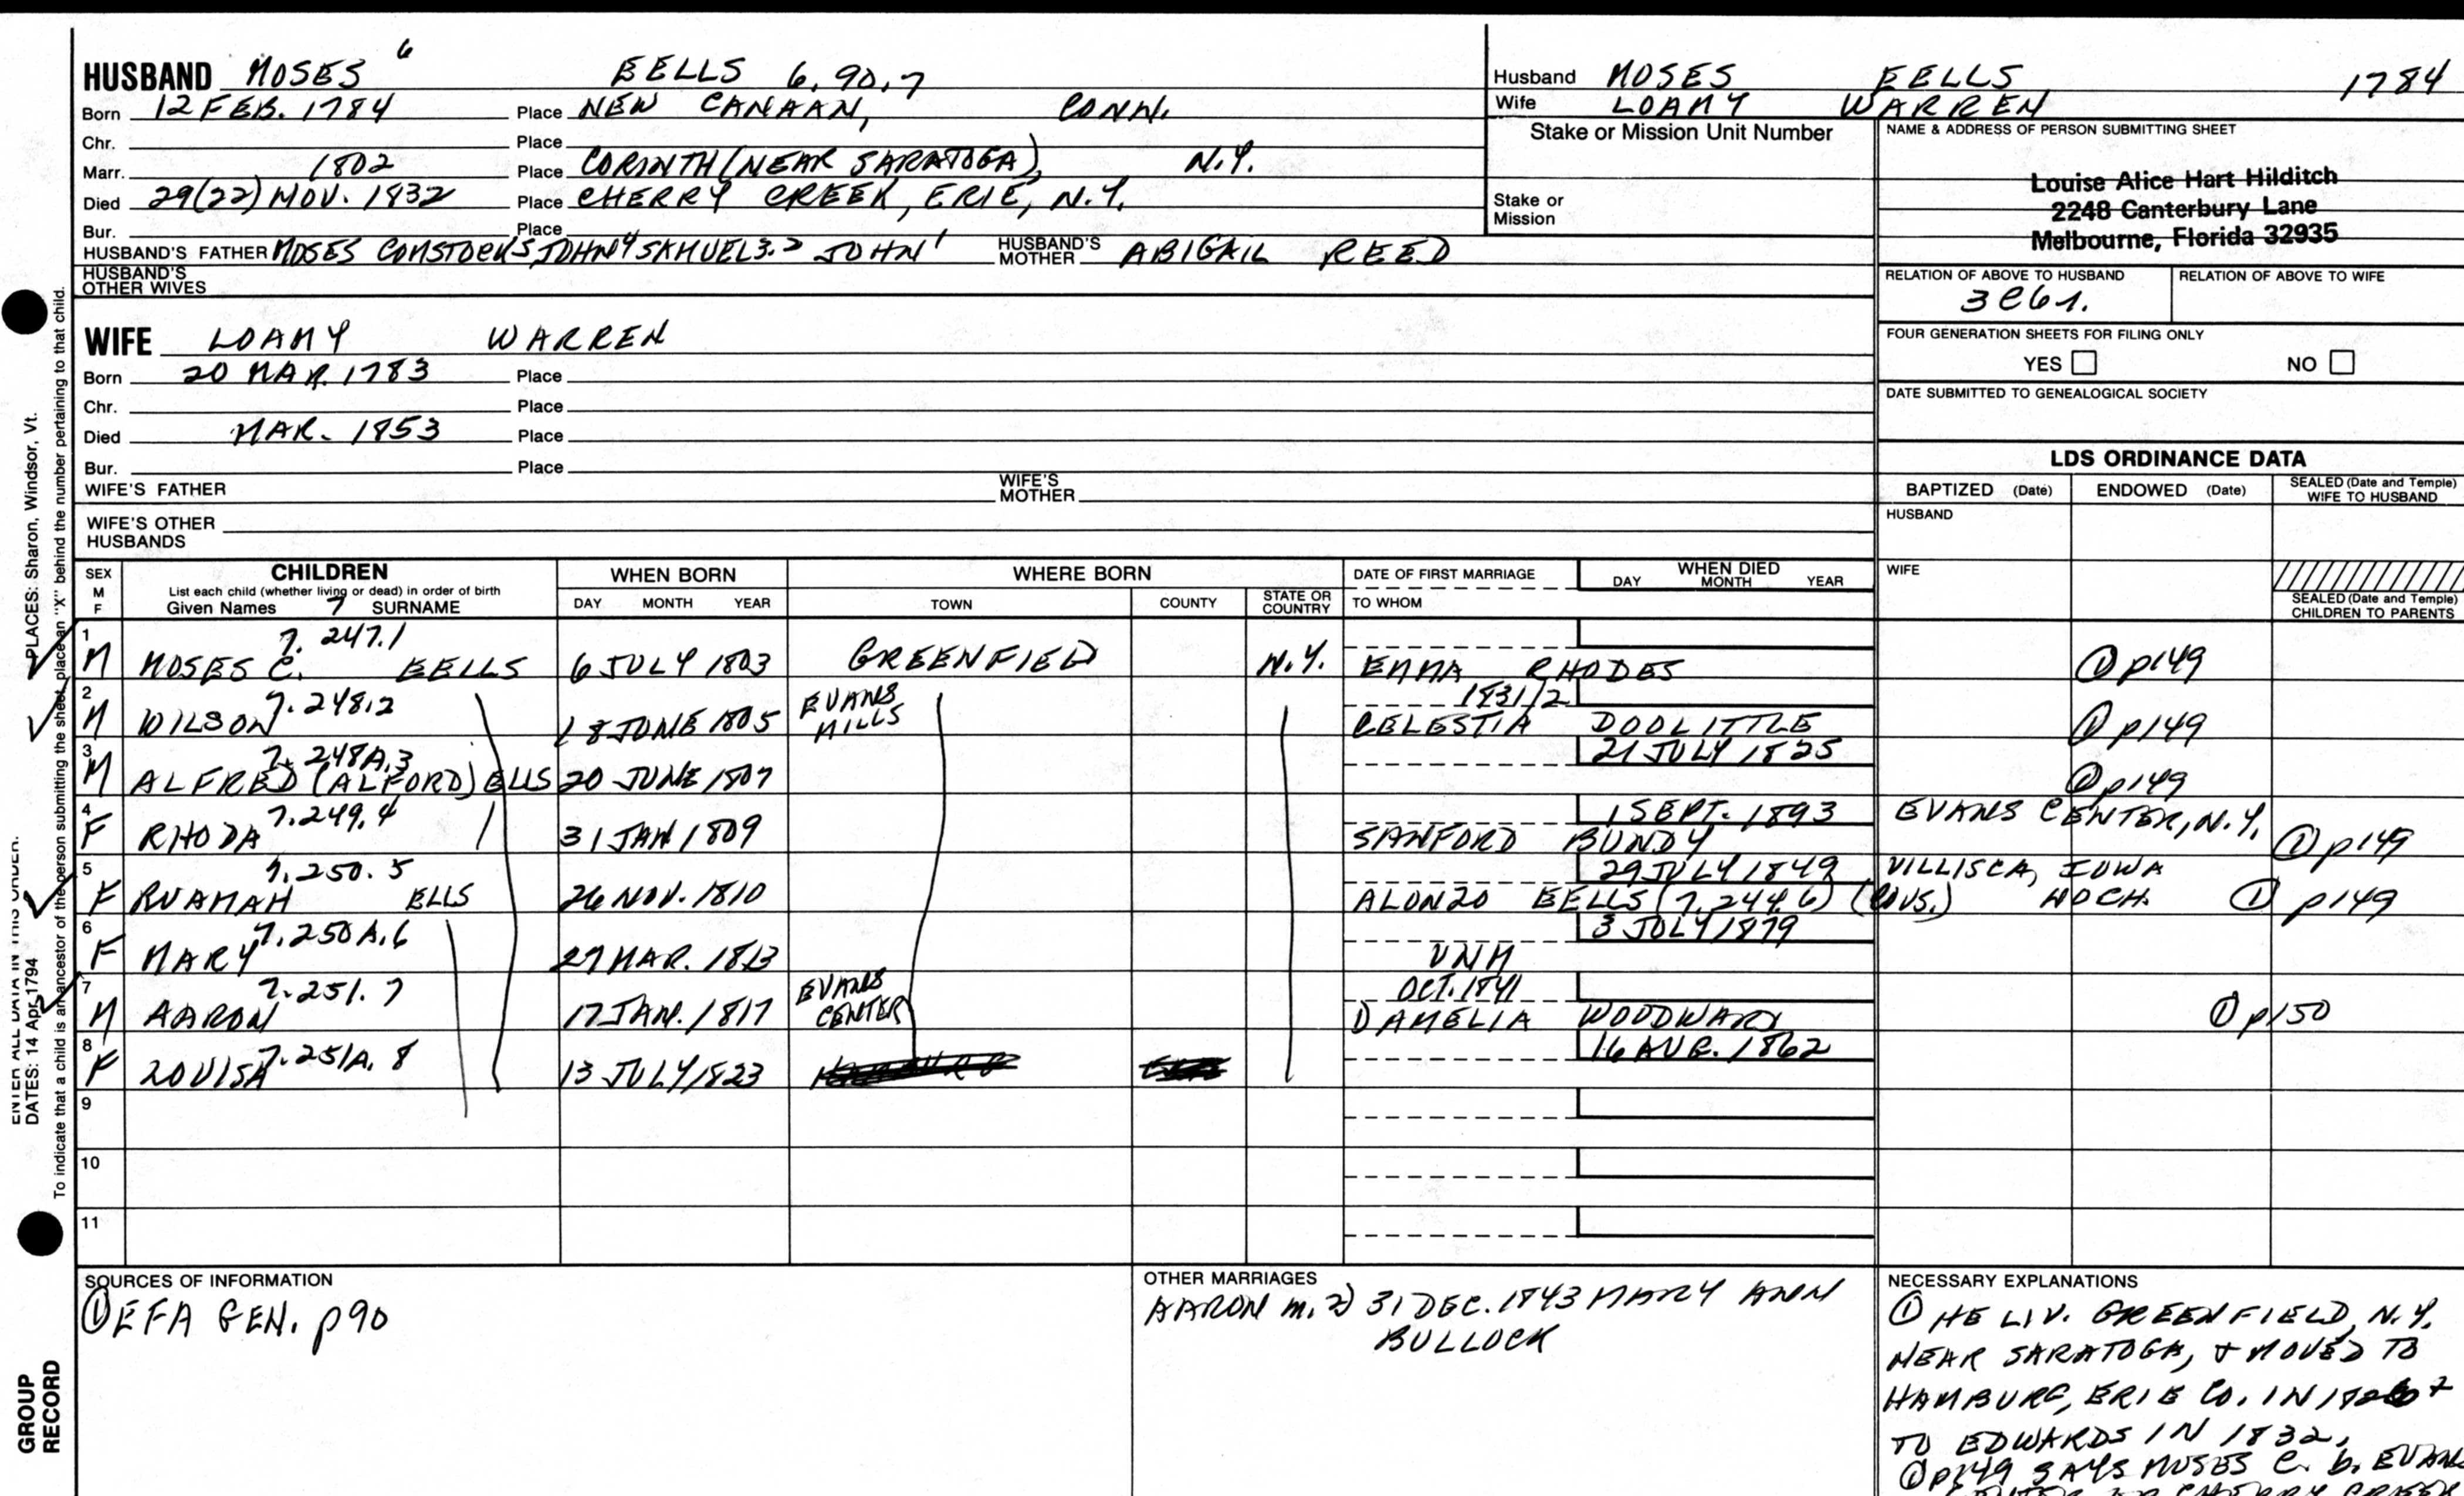 HUSBAND MOSES 6 EELLS 6.90.7
Born 12 FEB. 1784 Place NEW CANAAN, CONN.
Chr. Place
Marr. 1802 Place CORINTH (NEAR SARATOGA), N.Y.
Died 29(22) NOV. 1832 Place CHERRY CREEK, ERIE, N.Y.
Bur. Place
HUSBAND'S FATHER MOSES COMSTOCK5, JOHN4 SAMUEL3.2 JOHN1 HUSBAND'S MOTHER ABIGAIL REED
HUSBAND'S OTHER WIVES
Husband MOSES EELLS 1784
Wife LOAMY WARREN
Stake or Mission Unit Number
Stake or Mission
NAME & ADDRESS OF PERSON SUBMITTING SHEET
Louise Alice Hart Hilditch
2248 Canterbury Lane
Melbourne, Florida 32935
RELATION OF ABOVE TO HUSBAND RELATION OF ABOVE TO WIFE
FOUR GENERATION SHEETS FOR FILING ONLY
YES NO
DATE SUBMITTED TO GENEALOGICAL SOCIETY
WIFE LOAMY WARREN
Born 20 MAR. 1783 Place
Chr. Place
Died MAR. 1853 Place
Bur. Place
WIFE'S FATHER WIFE'S MOTHER
WIFE'S OTHER HUSBANDS
LDS ORDINANCE DATA
BAPTIZED (Date) ENDOWED (Date) SEALED (Date and Temple) WIFE TO HUSBAND
HUSBAND
WIFE
SEALED (Date and Temple) CHILDREN TO PARENTS
SEX M F
CHILDREN
List each child (whether living or dead) in order of birth
Given Names 7 SURNAME
WHEN BORN
DAY MONTH YEAR
WHERE BORN
TOWN COUNTY STATE OR COUNTRY
DATE OF FIRST MARRIAGE
TO WHOM
WHEN DIED
DAY MONTH YEAR
1 7.247.1
M MOSES C. EELLS 6 JULY 1803 GREENFIELD N.Y. EMMA RHODES ① p149
2 7.248.2 EVANS MILLS 1831/2
M WILSON 18 JUNE 1805 CELESTIA DOOLITTLE ① p149
3 7.248A.3 21 JULY 1825
M ALFRED (ALFORD) ELLS 20 JUNE 1807 ① p149
4 7.249.4 1 SEPT. 1893 EVANS CENTER, N.Y.
F RHODA 31 JAN 1809 SANFORD BUNDY ① p149
5 7.250.5 29 JULY 1849 VILLISCA, IOWA
F RUAMAH ELLS 26 NOV. 1810 ALONZO EELLS (7.244.6) (COUS.) NO CH. ① p149
6 7.250A.6 3 JULY 1879
F MARY 27 MAR. 1813 UNM
7 7.251.7 EVANS CENTER OCT. 1841
M AARON 17 JAN. 1817 DAMELIA WOODWARD ① p150
8 7.251A.8 16 AUG. 1862
F LOUISA 13 JULY 1823
9
10
11
SOURCES OF INFORMATION
① EFA GEN. p90
OTHER MARRIAGES
AARON m. 2) 31 DEC. 1843 MARY ANN
BULLOCK
NECESSARY EXPLANATIONS
① HE LIV. GREENFIELD, N.Y.
NEAR SARATOGA, & MOVED TO
HAMBURG, ERIE CO. IN &
TO EDWARDS IN 1832,
① p149 SAYS MOSES C. b. EVANS
CHERRY CREEK
ENTER ALL DATA IN THIS ORDER:
DATES: 14 Apr 1794 PLACES: Sharon, Windsor, Vt.
To indicate that a child is an ancestor of the person submitting the sheet, place an "X" behind the number pertaining to that child.
GROUP RECORD